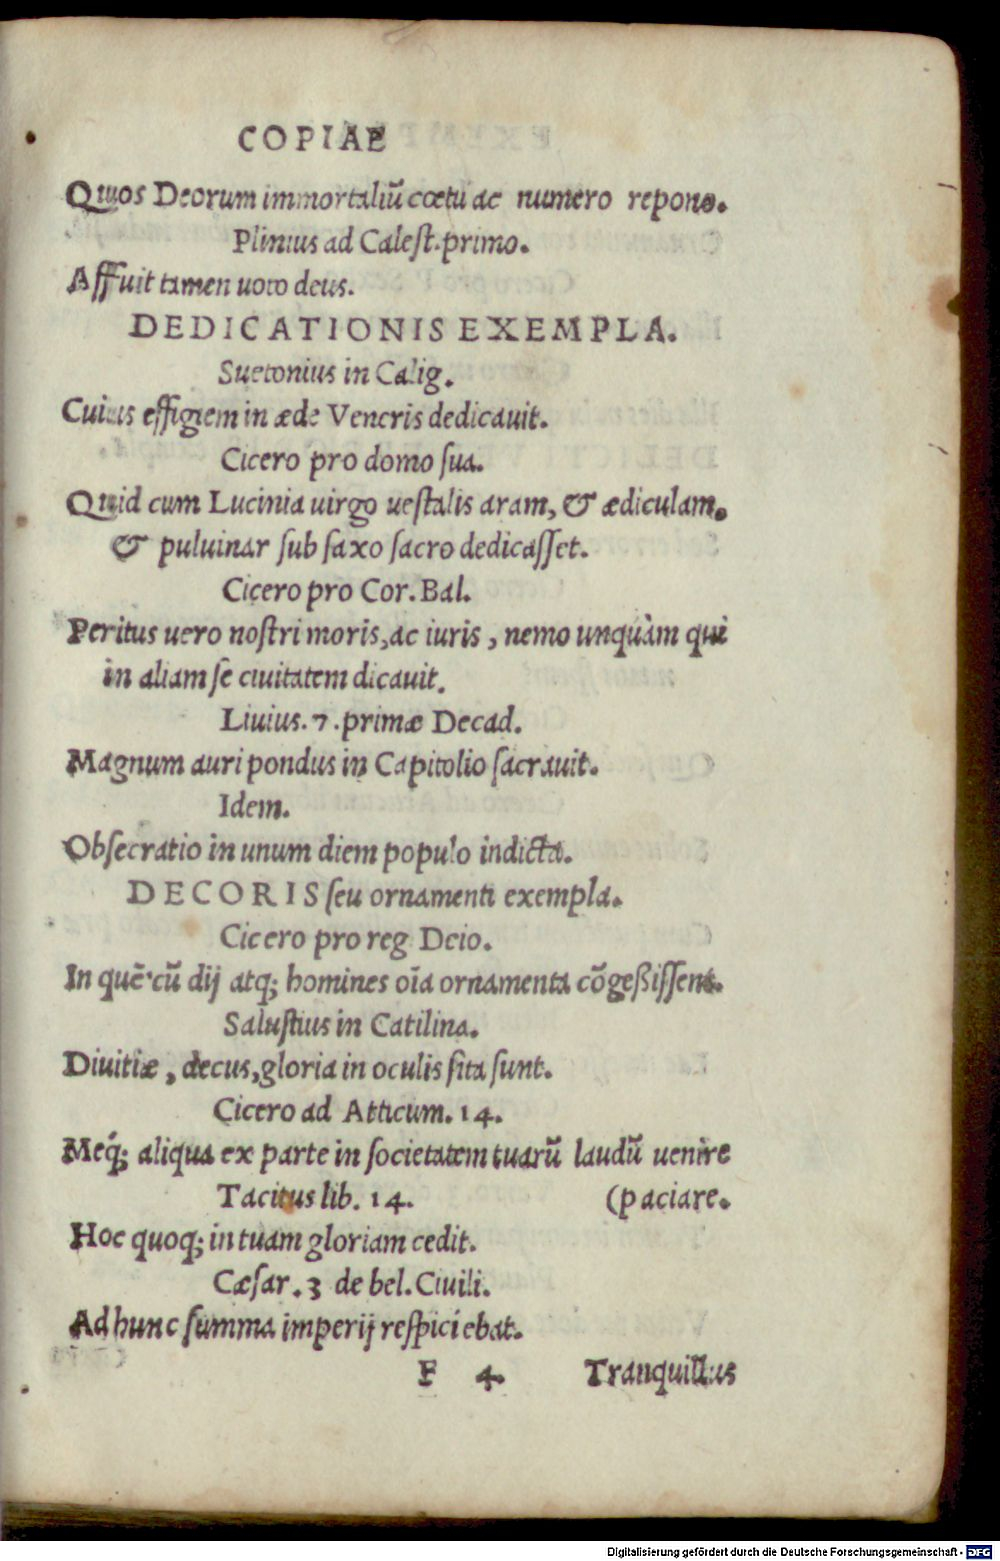 COPIAE
Quos Deorum immortaliũ cœtu ac numero repono.
Plinius ad Calest. primo.
Affuit tamen uoto deus.
DEDICATIONIS EXEMPLA.
Suetonius in Calig.
Cuius effigiem in æde Veneris dedicauit.
Cicero pro domo sua.
Quid cum Lucinia uirgo uestalis aram, & ædiculam,
& puluinar sub saxo sacro dedicasset.
Cicero pro Cor. Bal.
Peritus uero nostri moris, ac iuris, nemo unquàm qui
in aliam se ciuitatem dicauit.
Liuius. 7. primæ Decad.
Magnum auri pondus in Capitolio sacrauit.
Idem.
Obsecratio in unum diem populo indicta.
DECORIS seu ornamenti exempla.
Cicero pro reg Deio.
In quẽ cũ dij atq; homines oĩa ornamenta cõgeßissent.
Salustius in Catilina.
Diuitiæ, decus, gloria in oculis sita sunt.
Cicero ad Atticum. 14.
Meq́; aliqua ex parte in societatem tuarũ laudũ uenire
Tacitus lib. 14. (paciare.
Hoc quoq; in tuam gloriam cedit.
Cæsar. 3 de bel. Ciuili.
Ad hunc summa imperij respiciebat.
F 4 Tranquillus
Digitalisierung gefördert durch die Deutsche Forschungsgemeinschaft - DFG